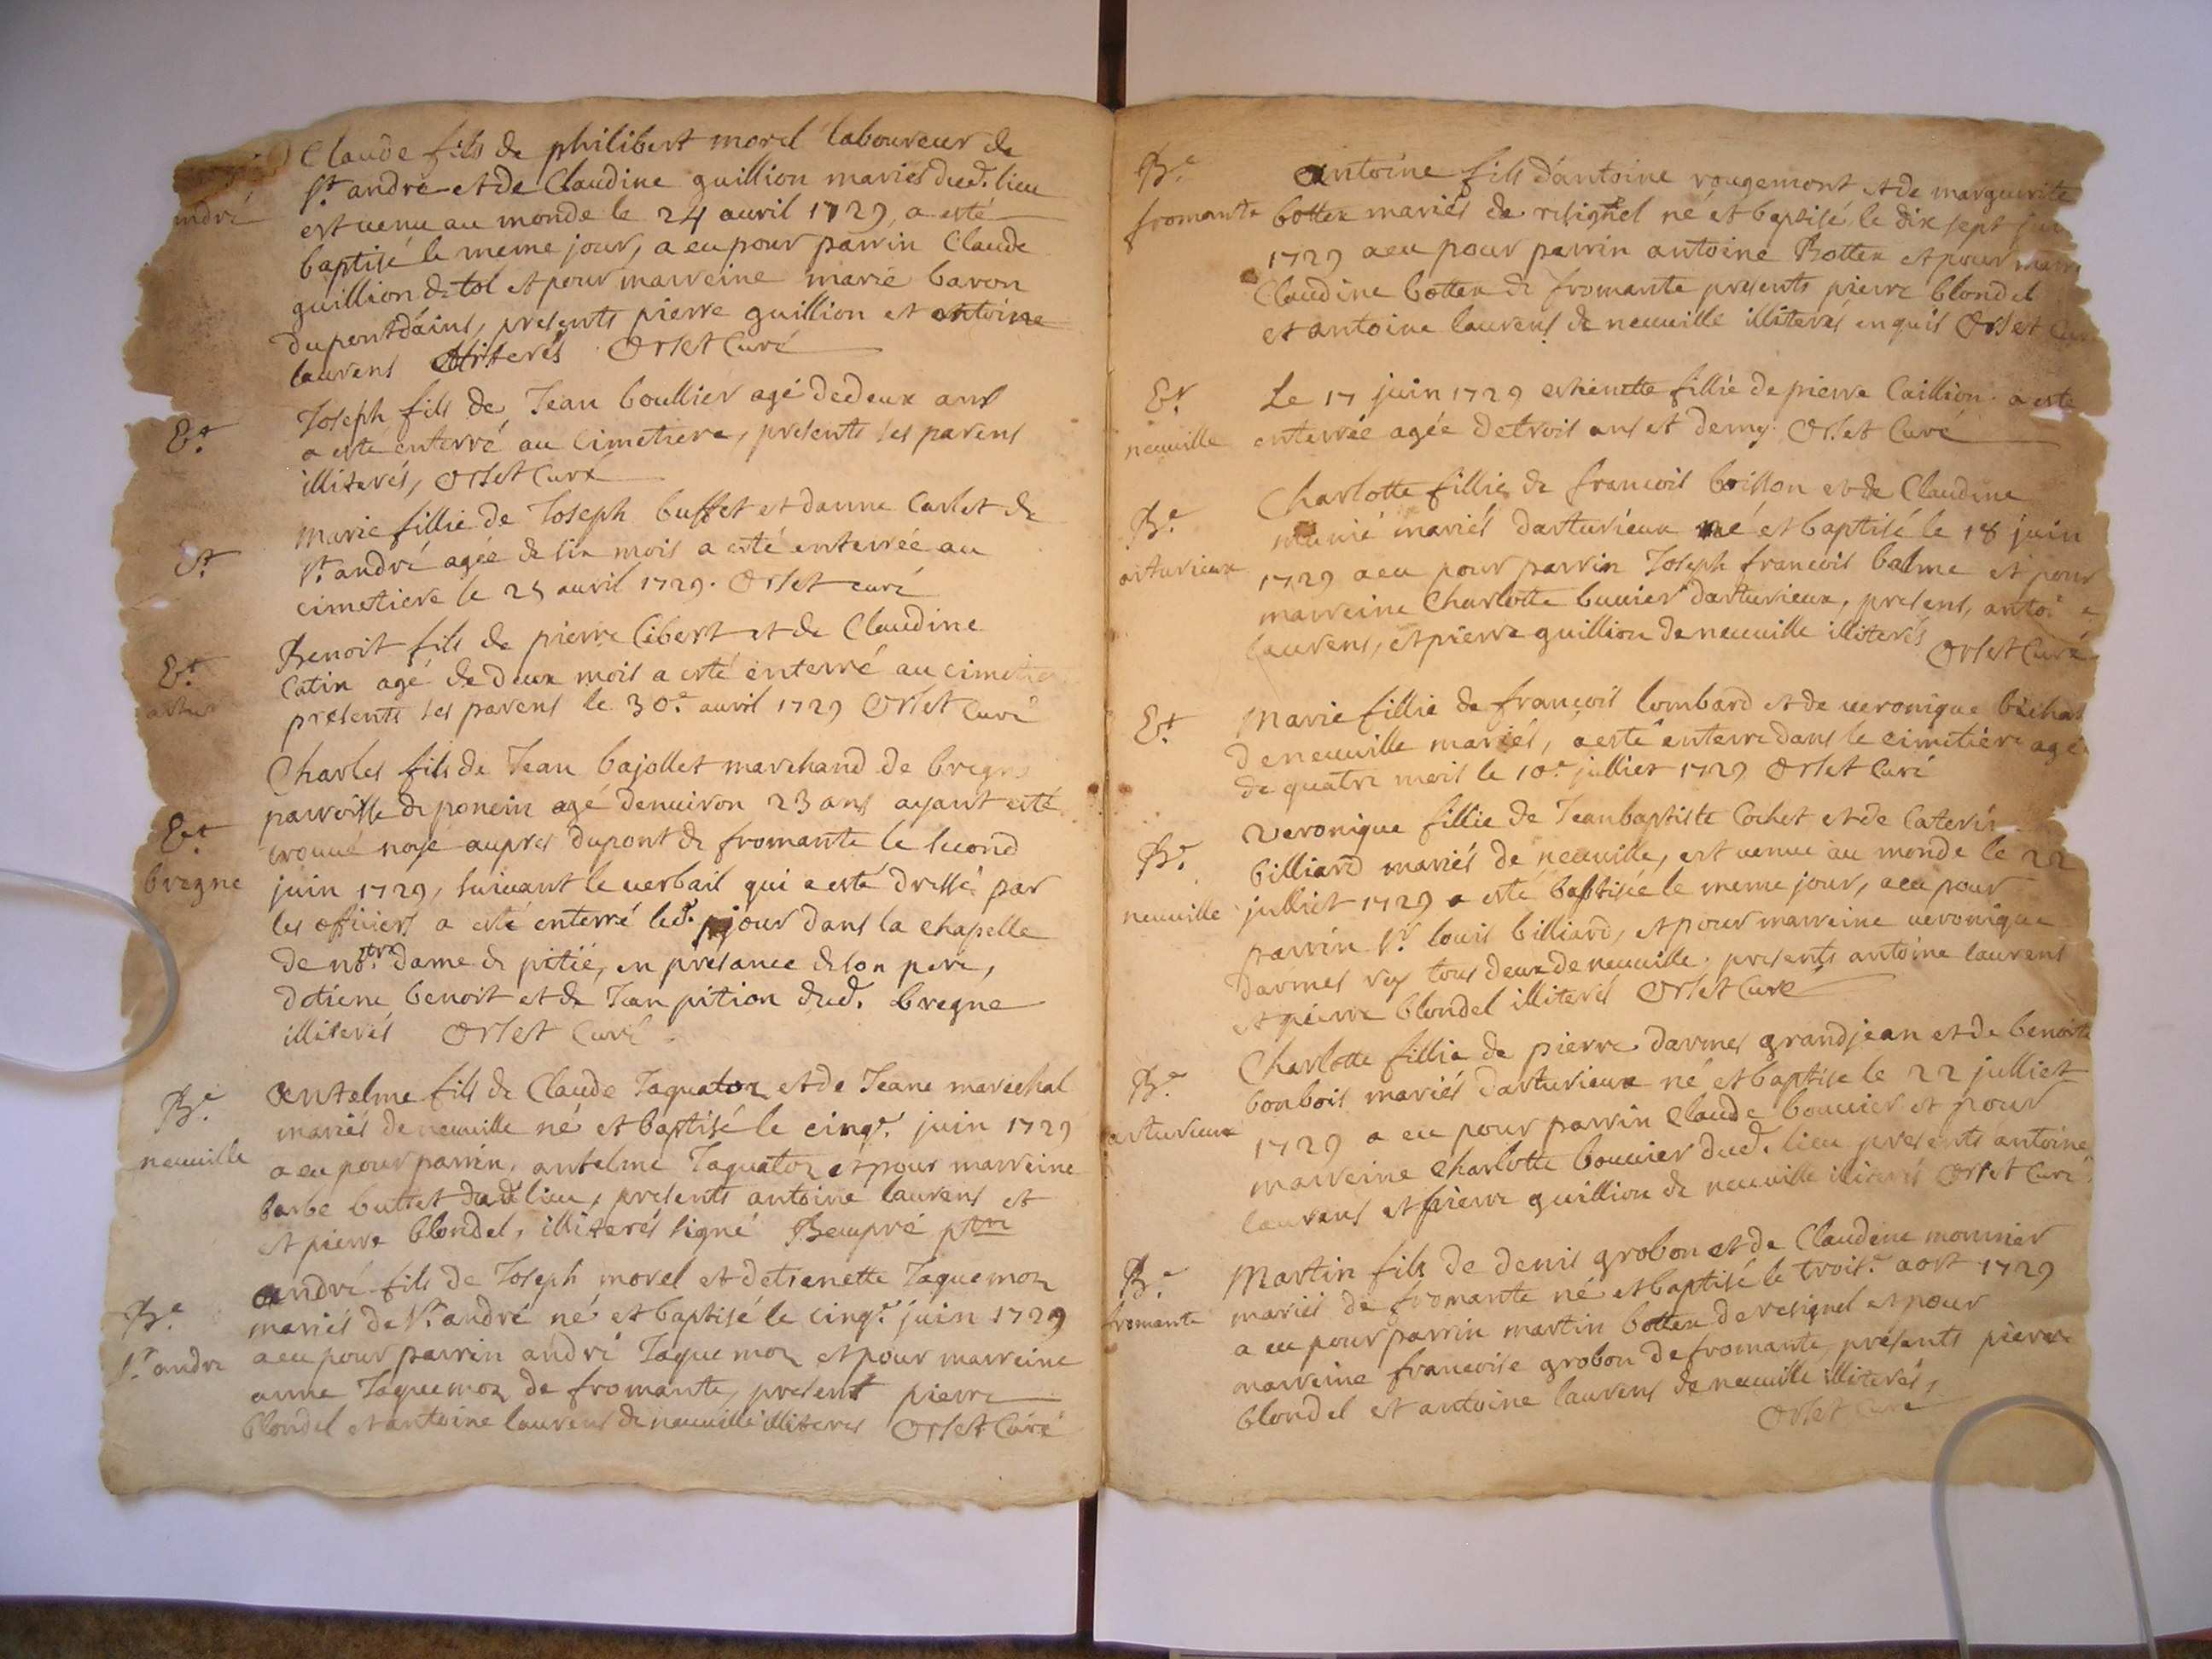 Claude fils de philibert morel laboureur de
ndré
st. andré et de Claudine guillion mariés dud. lieu
est venu au monde le 24 auril 1729, a esté
baptisé le meme jour, a eu pour parrin Claude
guillion de tol et pour marreine marie baron
du pont dains, presents pierre guillion et antoine
laurens illiterés Orset Curé
Et. Joseph fils de Jean boullier agé de deux ans
a esté enterré au cimetiere, presents ses parens
illiterés, Orset Curé
Et. marie fillie de Joseph buffet et danne Carlet de
st. andré agée de six mois a esté enterrée au
cimetiere le 25 auril 1729. Orset curé
Et. Benoit fils de pierre Cibert et de Claudine
Catin agé de deux mois a esté enterré au cimetie
presents ses parens le 30e. auril 1729 Orset Curé
Charles fils de Jean bajollet marchand de bregn
parroisse de poncin agé denuiron 23 ans ayant esté
Et. trouué noyé aupres du pont de fromante le second
bregne juin 1729, suiuant le uerbail qui a esté dressé par
les officiers a esté enterré led. jour dans la chapelle
de notre. dame de pitié, en presance de son pere,
detiene benoit et de Jean pition dud. bregne
illiterés Orset Curé.
Be. antelme fils de Claude Jaquaton et de Jeane marechal
mariés de neuuille né et baptisé le cinqe. juin 1729
neuuille a eu pour parrin, antelme Jaquaton et pour marreine
barbe buttet dud. lieu, presents antoine laurens et
et pierre blondel, illiterés signé Beaupré ptre
andré fils de Joseph morel et detienette Jaquemon
Be. mariés de st. andré né et baptisé le cinqe. juin 1729
st. andre a eu pour parrin andré Jaquemon et pour marreine
anne Jaquemon de fromante, present pierre
blondel et antoine laurens de neuuille illiteres Orset Curé
Be. antoine fils dantoine rougemont et de marguerite
fromante bottex mariés de resignel né et baptisé le dix sept jui
1729 a eu pour parrin antoine Bottex et pour marr
Claudine bottex de fromante presents pierre blondel
et antoine laurens de neuuille illiterés enquis Orset Cur
Et. Le 17 juin 1729 etienette fillie de pierre Caillion a esté
neuuille enterrée agée de trois ans et demy. Orset Curé
Charlotte fillie de francois boisson et de Claudine
Be. munié mariés darturieux né et baptisé le 18 juin
arturieux 1729 a eu pour parrin Joseph francois balme et pour
marreine Charlotte buuier darturieux, presens, antoi e
laurens, et pierre guillion de neuuille illiterés
Orset Curé
Et. Marie fillie de francois lombard et de ueronique bichat
de neuuille mariés, a esté enterre dans le cimetiére agé
de quatre mois le 10e. julliet 1729 Orset Curé
ueronique fillie de Jean baptiste Cochet et de Caterin
Be. billiard mariés de neuuille, est uenue au monde le 22
neuuille julliet 1729 a esté baptisée le meme jour, a eu pour
parrin sr. louis billiard, et pour marreine ueronique
darmes rey tous deux de neuuille. presents antoine laurens
et pierre blondel illiterés Orset Curé
Charlotte fillie de pierre darmes grandjean et de benoite
Be. bonbois mariés darturieux né et baptise le 22 julliet
arturieux 1729 a eu pour parrin Claude bouuier et pour
marreine Charlotte bouuier dud. lieu presents antoine
laurens et pierre guillion de neuuille illiterés Orset Curé
Martin fils de denis grobon et de Claudine monnier
Be. mariés de fromante né et baptisé le troise. aost 1729
fromante a eu pour parrin martin bottex de resignel et pour
marreine francoise grobon de fromante, présents pierre
blondel et antoine laurens de neuuille illiterés,
Orset Curé